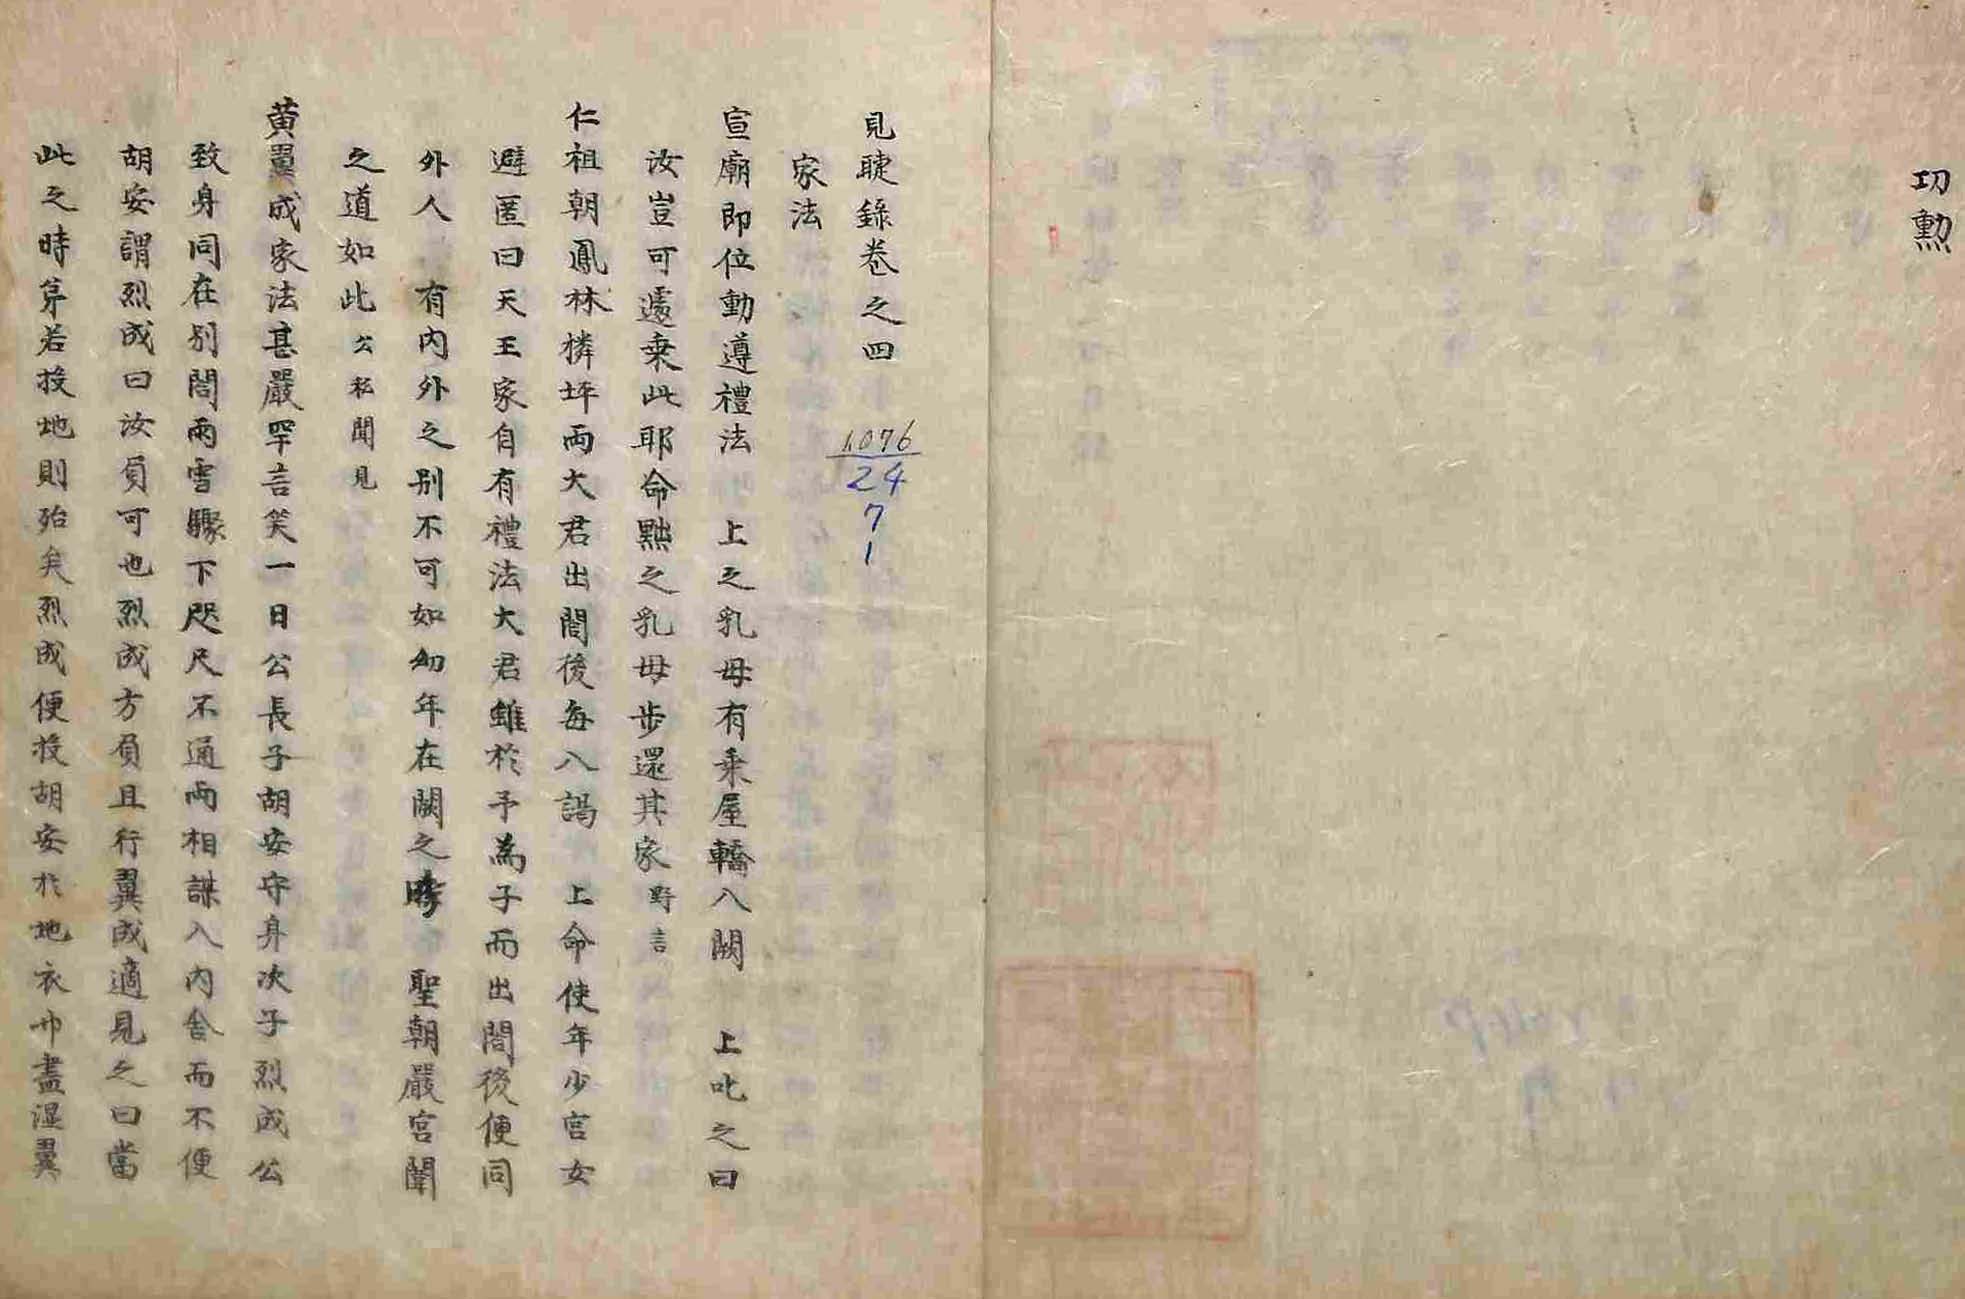 功勲
見睫錄卷之四
1,076
24
7
1
家法
宣廟即位動遵禮法 上之乳母有乘屋轎入闕 上叱之曰
汝豈可遽乘此耶命黜之乳母步還其家 野言
仁祖朝鳳林麟坪兩大君出閤後每入謁 上命使年少宮女
避匿曰天王家自有禮法大君雖於予為子而出閤後便同
外人 有內外之別不可如幼年在闕之時 聖朝嚴宮闈
之道如此 公私聞見
黃翼成家法甚嚴罕言笑一日公長子胡安守身次子烈成公
致身同在別閤雨雪驟下咫尺不通兩相謀入內舍而不便
胡安謂烈成曰汝負可也烈成方負且行翼成適見之曰當
此之時芽若投地則殆矣烈成便投胡安於地衣巾盡濕翼